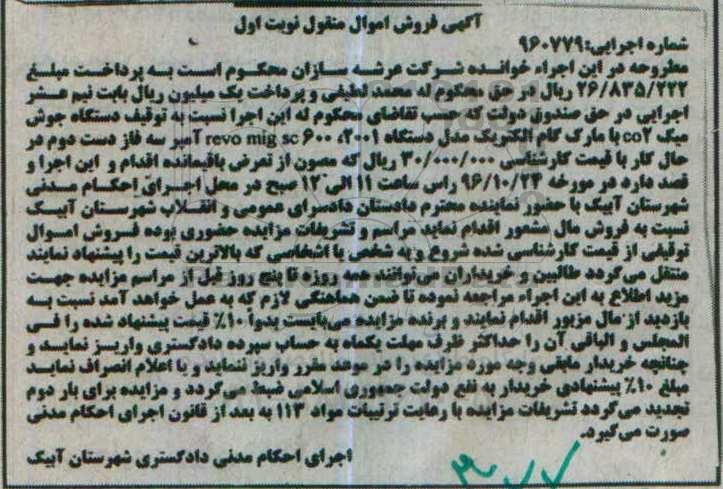 آگهی فروش اموال منقول نوبت اول
شماره اجرایی: ۹۶۰۷۷۹
مطروحه در این اجراء خوانده شرکت عرشه سازان محکوم است به پرداخت مبلغ
۲۶/۸۳۵/۲۲۲ ریال در حق محکوم له محمد لطیفی و پرداخت یک میلیون ریال بابت نیم عشر
اجرایی در حق صندوق دولت که حسب تقاضای محکوم له این اجرا نسبت به توقیف دستگاه جوش
میگ co۲ با مارک گام الکتریک مدل دستگاه ۲۰۰۱، revo mig sc ۶۰۰ آمپر سه فاز دست دوم در
حال کار با قیمت کارشناسی ۳۰/۰۰۰/۰۰۰ ریال که مصون از تعرض باقیمانده اقدام و این اجرا و
قصد دارد در مورخه ۹۶/۱۰/۲۴ راس ساعت ۱۱ الی ۱۲ صبح در محل اجرای احکام مدنی
شهرستان آبیک با حضور نماینده محترم دادستان دادسرای عمومی و انقلاب شهرستان آبیک
نسبت به فروش مال مشعور اقدام نماید مراسم و تشریفات مزایده حضوری بوده فروش اموال
توقیفی از قیمت کارشناسی شده شروع و به شخص یا اشخاصی که بالاترین قیمت را پیشنهاد نمایند
منتقل می‌گردد طالبین و خریداران می‌توانند همه روزه تا پنج روز قبل از مراسم مزایده جهت
مزید اطلاع به این اجراء مراجعه نموده تا ضمن هماهنگی لازم که به عمل خواهد آمد نسبت به
بازدید از مال مزبور اقدام نمایند و برنده مزایده می‌بایست بدواً ۱۰٪ قیمت پیشنهاد شده را فی
المجلس و الباقی آن را حداکثر ظرف مهلت یکماه به حساب سپرده دادگستری واریز نماید و
چنانچه خریدار مابقی وجه مورد مزایده را در موعد مقرر واریز ننماید و یا اعلام انصراف نماید
مبلغ ۱۰٪ پیشنهادی خریدار به نفع دولت جمهوری اسلامی ضبط می‌گردد و مزایده برای بار دوم
تجدید می‌گردد تشریفات مزایده با رعایت ترتیبات مواد ۱۱۳ به بعد از قانون اجرای احکام مدنی
صورت می‌گیرد.
اجرای احکام مدنی دادگستری شهرستان آبیک